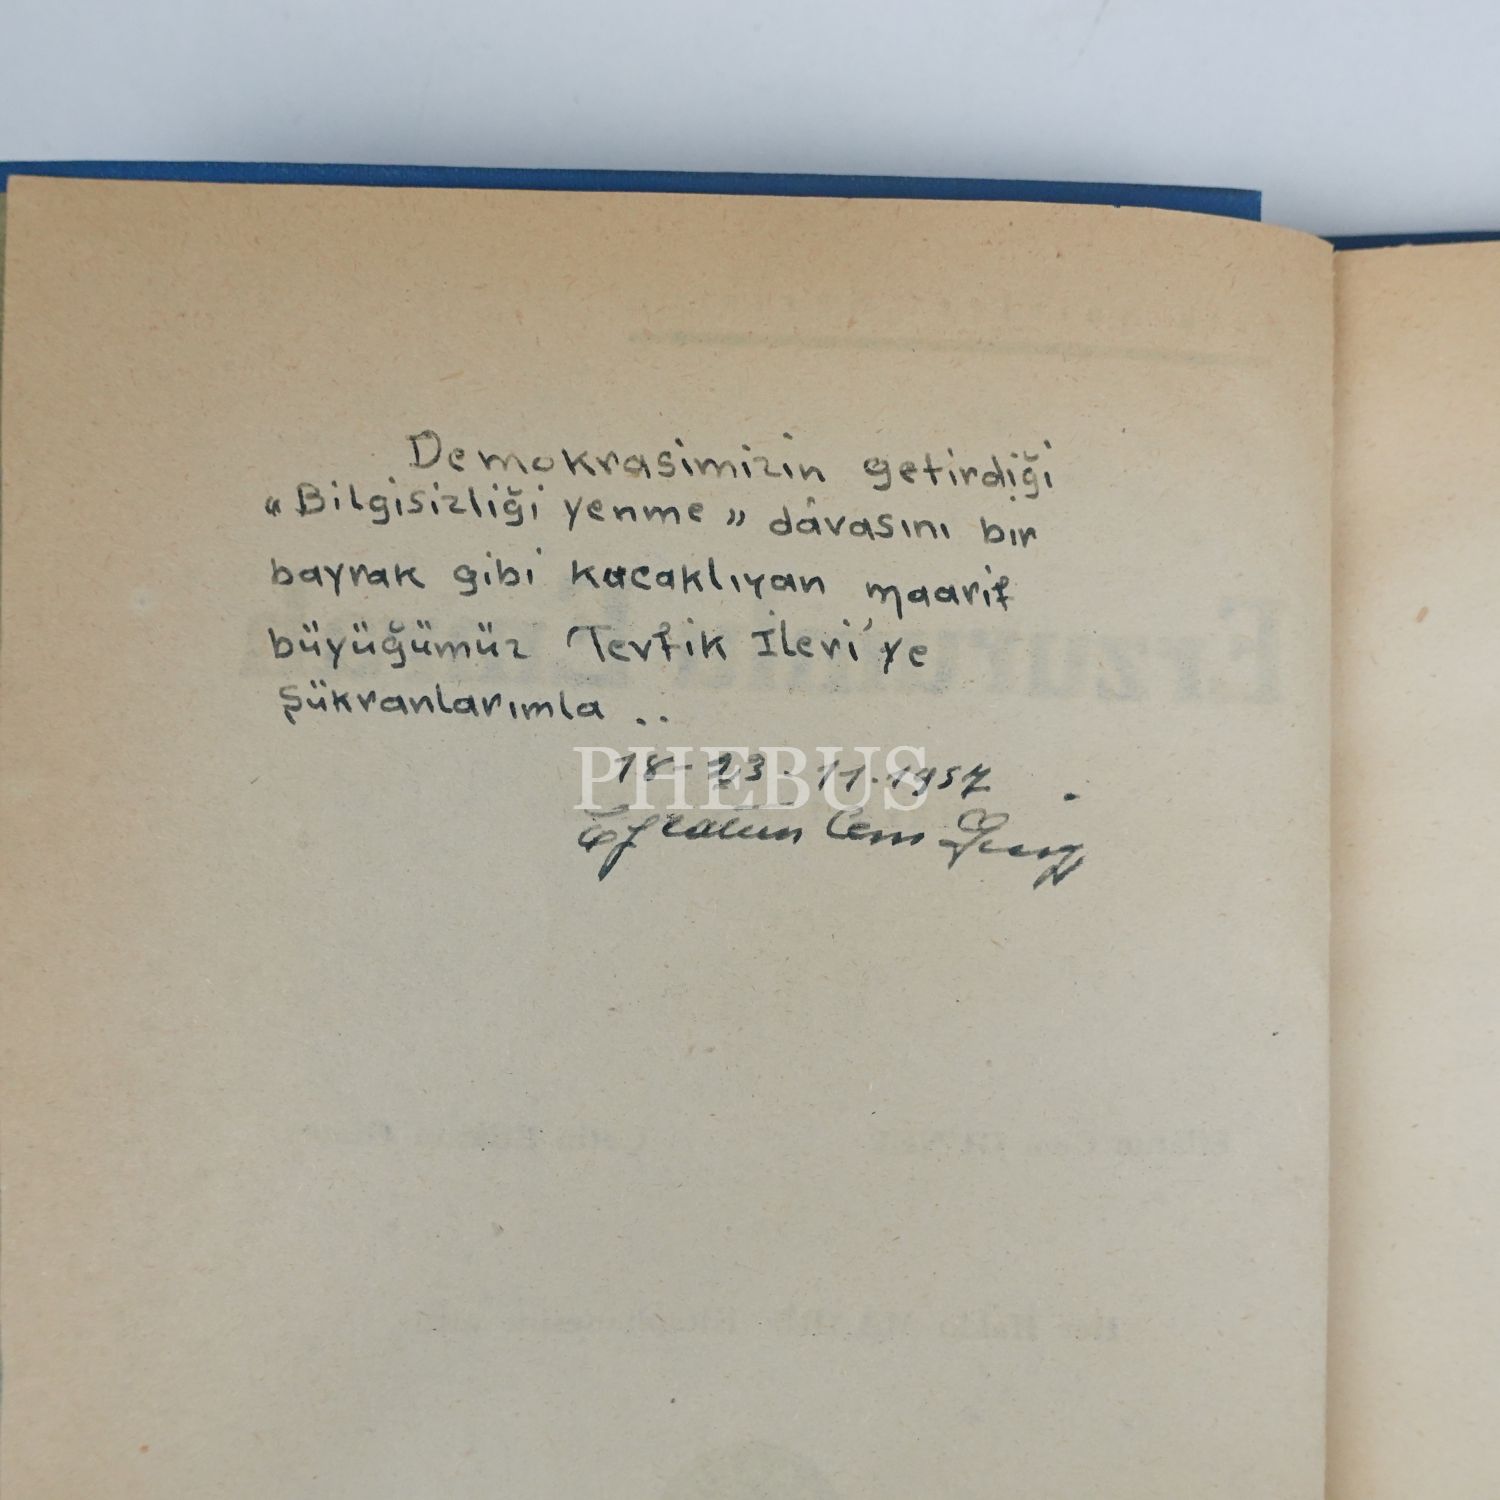 Demokrasimizin getirdiği
«Bilgisizliği yenme» dâvasını bir
bayrak gibi kucaklıyan maarif
büyüğümüz Tevfik İleri'ye
şükranlarımla ..
PHEBUS
18-23.11.1957
Eflatun Cem Güney